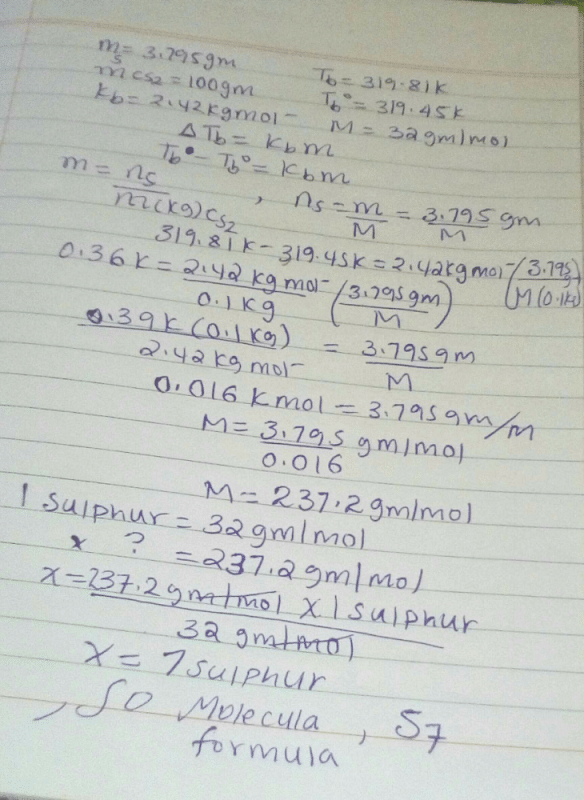 ms = 3.795gm
Tb = 319.81K
mcs2 = 100gm
Tb° = 319.45K
Kb = 2.42Kgmol-
M = 32gm/mol
ΔTb = Kbm
Tb• - Tb° = Kbm
m = ns/m(kg)cs2 , ns = m/M = 3.795 gm/M
319.81K - 319.45K = 2.42kgmol- (3.795/M(0.1k)
0.36K = 2.42 kgmol-/0.1kg (3.795gm/M)
0.39K(0.1kg)/2.42kgmol- = 3.795gm/M
0.016Kmol = 3.795gm/M
M = 3.795/0.016 gm/mol
M = 237.2gm/mol
1 Sulphur = 32gm/mol
x ? = 237.2gm/mol
x = 237.2gm/mol x 1 sulphur/32 gm/mol
x = 7 sulphur
, SO Molecula formula , S7